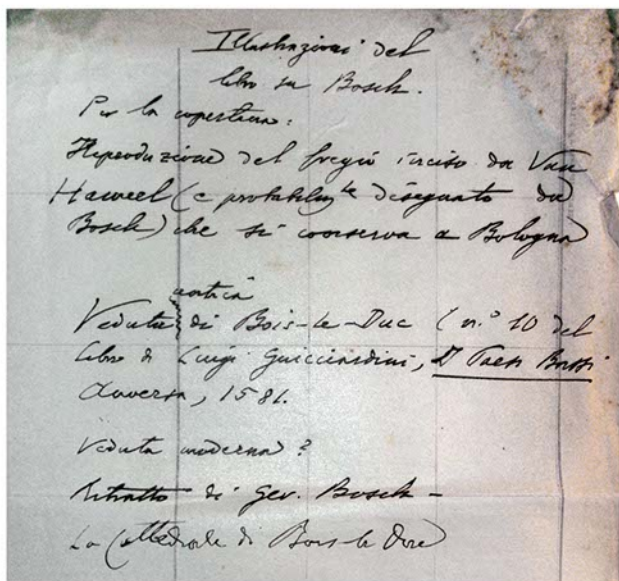 Illustrazioni del
libro su Bosch.
Per la copertina:
Reproduzione del fregio inciso da Van
Hameel (e probabilm.te disegnato da
Bosch) che si conserva a Bologna
antica
Veduta di Bois-le-Duc (n.º 10 del
libro di Luigi Guicciardini, I Paesi Bassi
Anversa, 1581.
Veduta moderna?
Ritratto di Ger. Bosch -
La Cattedrale di Bois-le-Duc